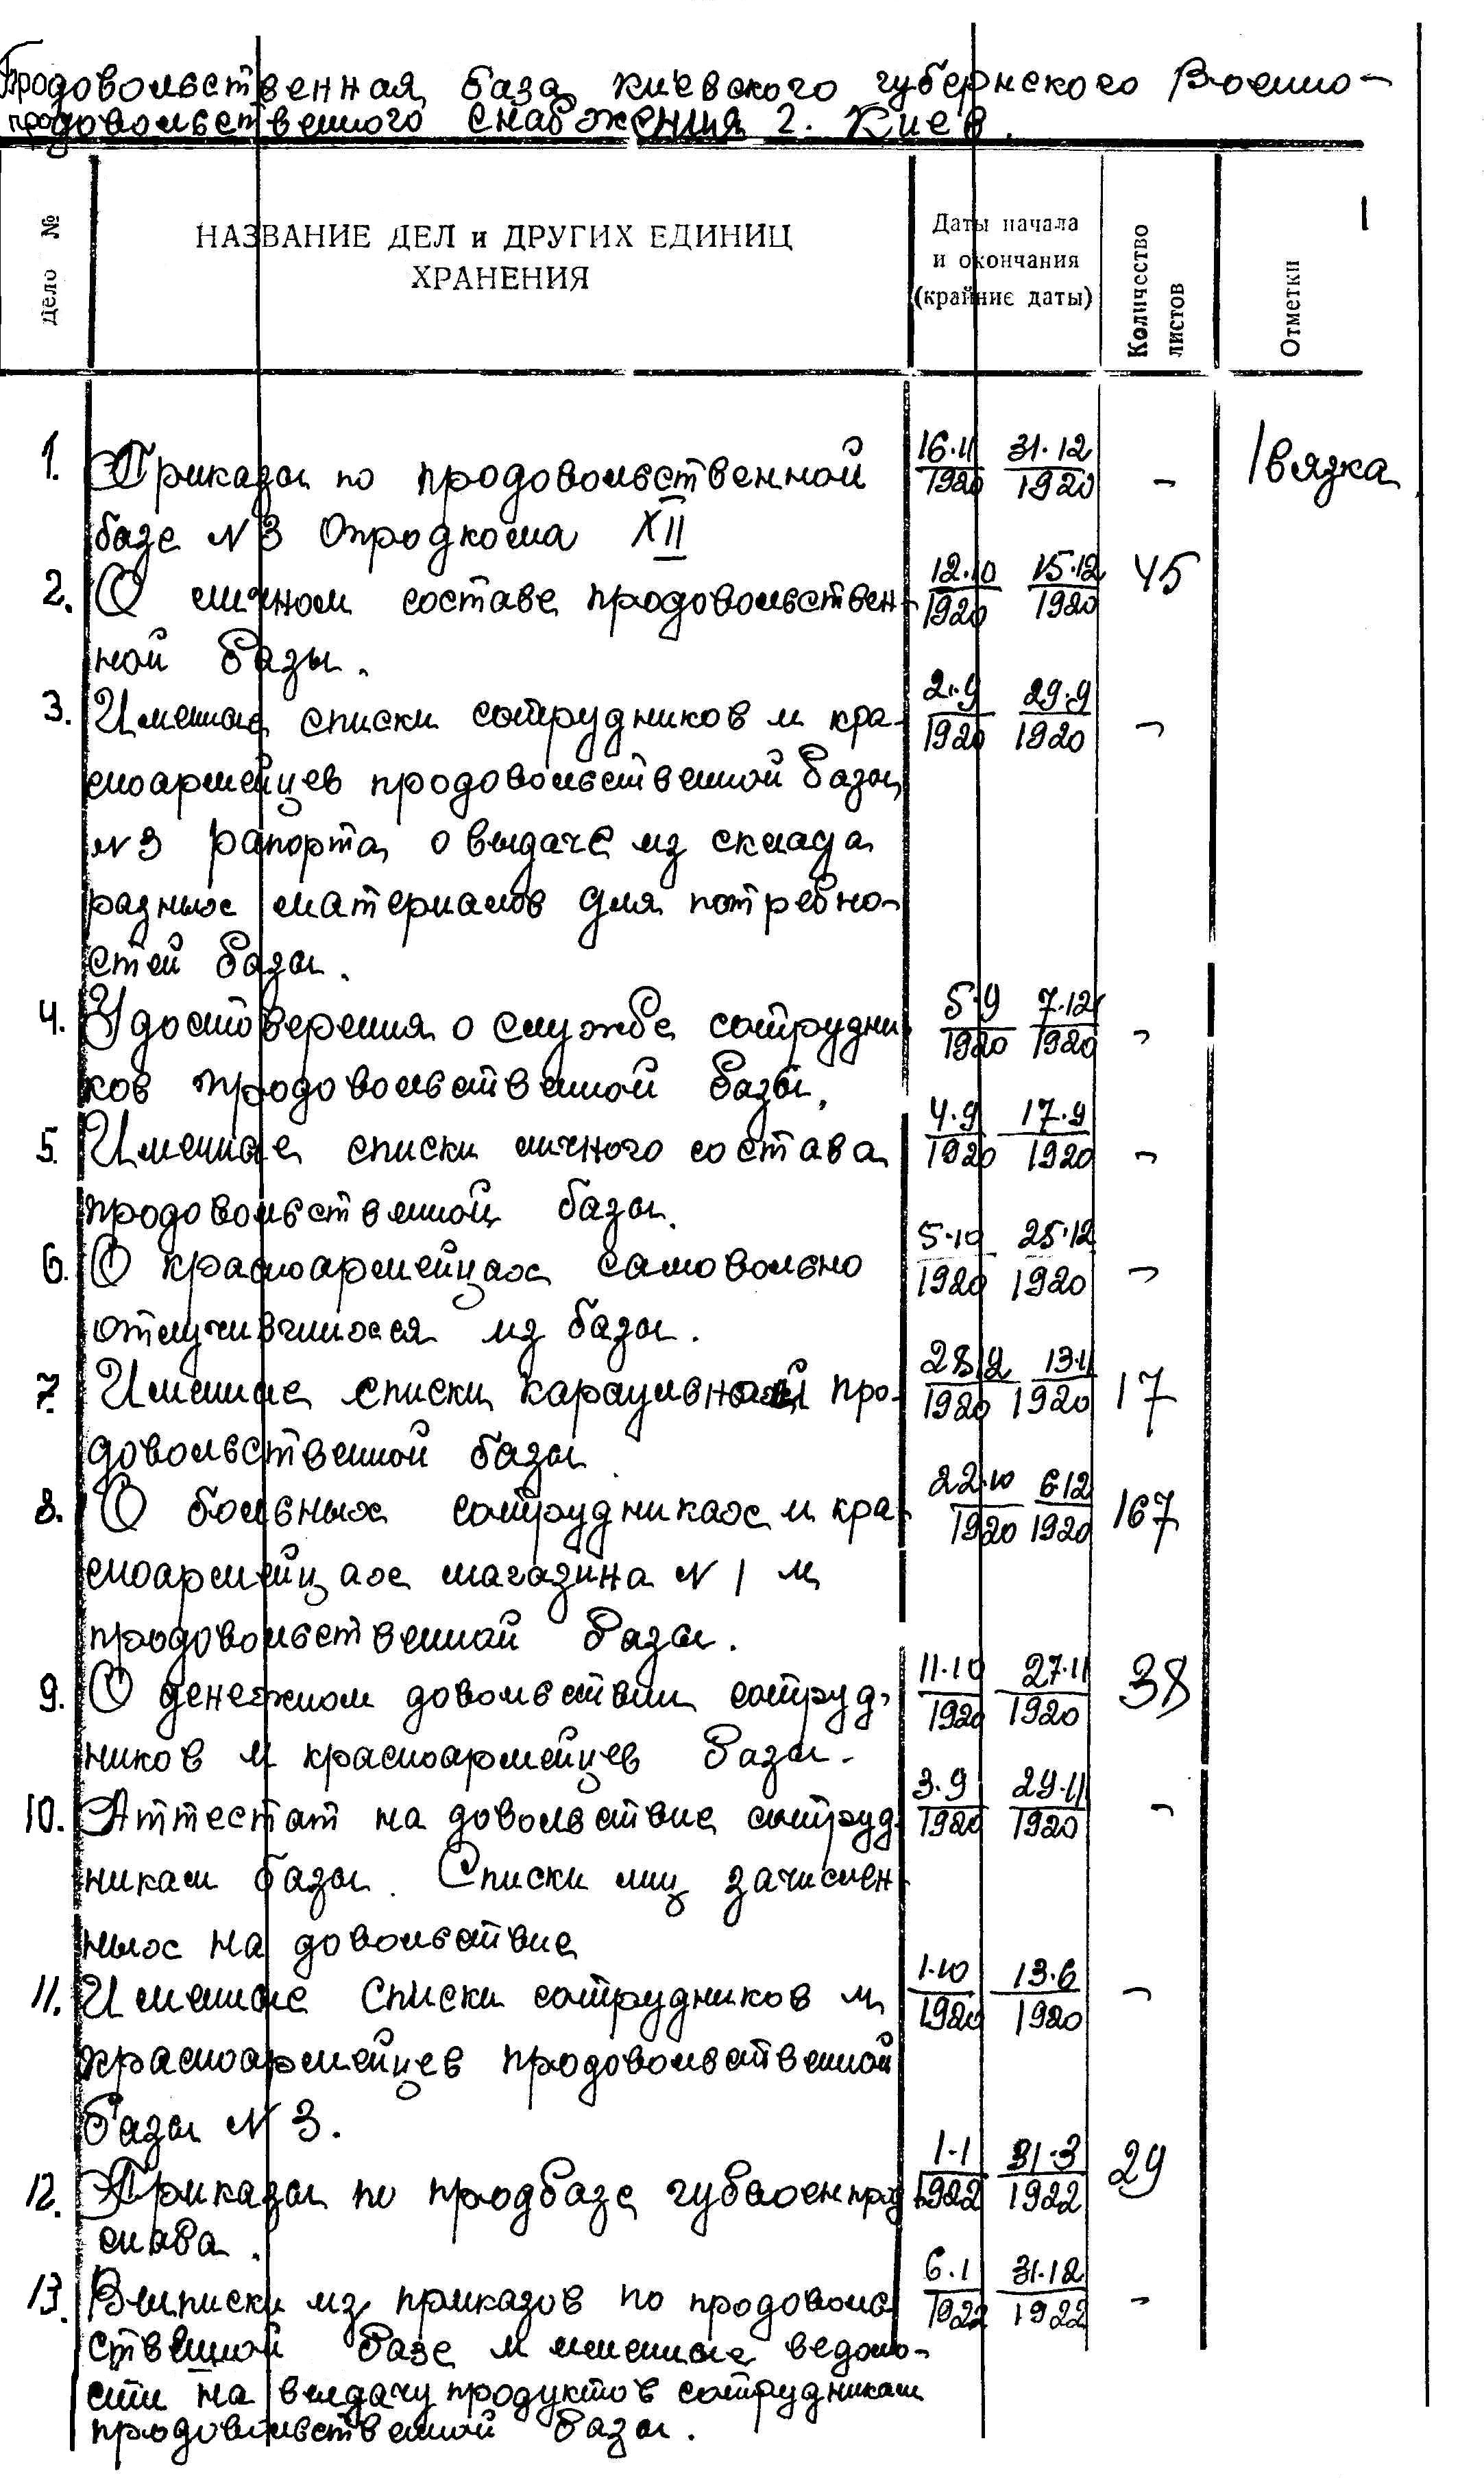 Продовольственная база Киевского губернского Военно-
продовольственного снабжения г. Киев.
дело №
НАЗВАНИЕ ДЕЛ и ДРУГИХ ЕДИНИЦ
ХРАНЕНИЯ
Даты начала
и окончания
(крайние даты)
Количество
листов
Отметки
1
1. Приказы по продовольственной 16.11 1920 31.12 1920 - 1 вязка
базе N 3 Опродкома XII
2. О личном составе продовольствен- 12.10 1920 15.12 1920 45
ной базы.
3. Именные списки сотрудников и кра- 2.9 1920 29.9 1920 -
сноармейцев продовольственной базы
N 3 рапорта о выдаче из склада
разных материалов для потребно-
стей базы.
4. Удостоверения о службе сотрудни- 5.9 1920 7.12 1920 -
ков продовольственной базы.
5. Именные списки личного состава 4.9 1920 17.9 1920 -
продовольственной базы.
6. О красноармейцах самовольно 5.10 1920 25.12 1920 -
отлучившихся из базы.
7. Именные списки караульной про- 1920 13.11 1920 17
довольственной базы
8. О больных сотрудниках и кра- 22.10 1920 6.12 1920 167
сноармейцах магазина N 1 и
продовольственной базы.
9. О денежном довольствии сотруд- 11.10 1920 27.11 1920 38
ников и красноармейцев базы.
10. Аттестат на довольствие сотруд- 3.9 1920 29.11 1920 -
никам базы. Списки лиц зачислен-
ных на довольствие
11. Именные списки сотрудников и 1.10 1920 13.6 1920 -
красноармейцев продовольственной
базы N 3.
12. Приказы по продбазе губвоенпрод 1.1 1922 31.3 1922 29
снаба.
13. Выписки из приказов по продоволь- 6.1 1922 31.12 1922 -
ственной базе и именные ведомо-
сти на выдачу продуктов сотрудникам
продовольственной базы.